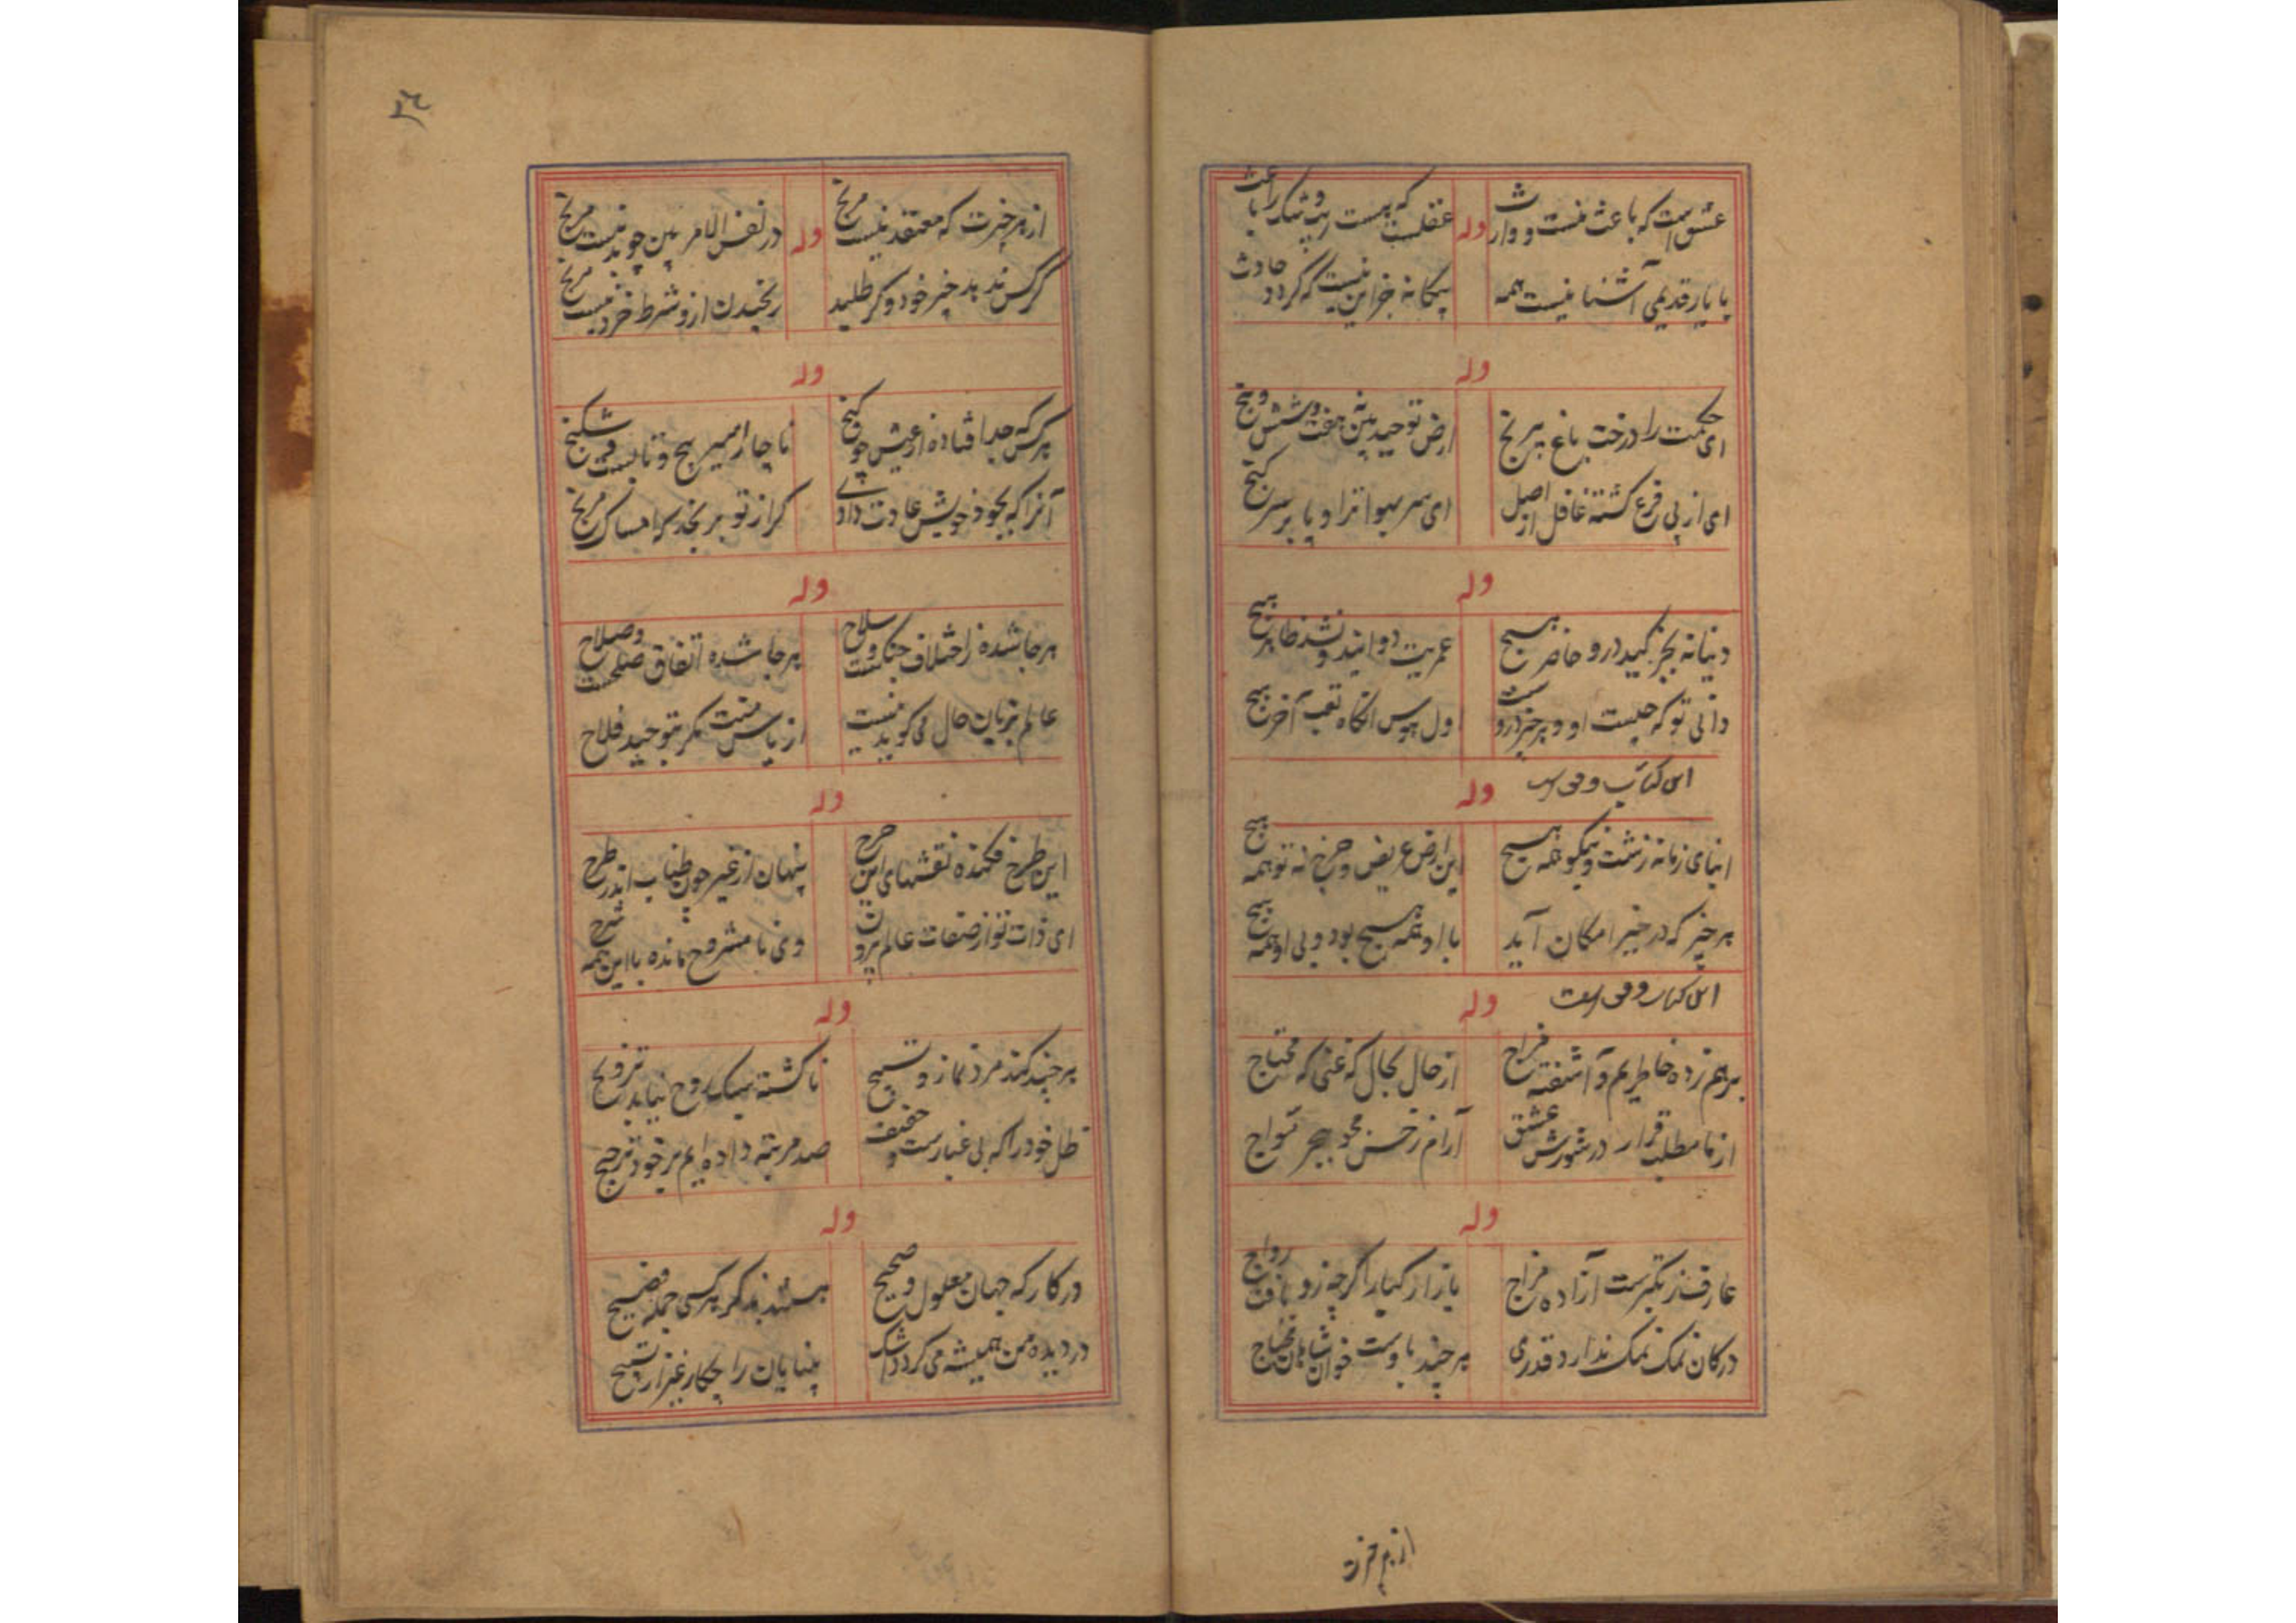 عشق است که باعث نیست و وارث
وله
عقلست که هست ریب و شک را باعث
با یار قدیمی آشنا نیست همه
بیکانه جز این نیست که کردد حادث
وله
ای حکمت را درخت باغ
ارض توحید بین نه هفت و شش و پنج
ای از پی فرع کشته غافل از اصل
ای سر بهوا ترا و پا بر سر کنج
وله
دنیا نه بجز کید درو حاضر هیچ
عمریت دوانید و نشد ظاهر هیچ
دانی تو که چیست او و هر چیز دروست
اول هوس انکاه تعب آخر هیچ
وله
ابنای زمانه زشت و نیکو همه هیچ
این ارض عریض و چرخ نه تو همه هیچ
هر چیز که در حیز امکان آید
با او همه هیچ بود و بی او همه هیچ
وله
برهم زده خاطریم و آشفته مزاج
از حال بحال که غنی که محتاج
از ما مطلب قرار در شورش عشق
آرام ز خس مجو ببحر مواج
وله
عارف ز تکبرست آزاده مزاج
بازار کیا را کرچه زو یافت رواج
در کان نمک نمک ندارد قدری
هر چند باوست خوان شاهان محتاج
از هر چیزت
۲۶
از هر چیزت که معتقد نیست مرنج
وله
در نفس الامر بین چو بد نیست مرنج
کر کس ندهد چیز خود و کر طلبد
رنجیدن ازو شرط خرد نیست مرنج
وله
هر کس که جدا فتاده از عیش چو کنج
ناچار اسیر پیچ و تابست و شکنج
آنرا که بجود خویش عادت دادی
کر از تو برنجد که امساک مرنج
وله
هر جا شده ز اختلاف جنکست و سلاح
هر جا شده اتفاق صلحست و صلاح
عالم بزبان حال می کوید نیست
از یاس مکر بتوحید فلاح
وله
این طرح فکنده نقشهای این چرخ
پنهان از غیر چون طناب اندر طرح
ای ذات تو از صفات عالم برون
وی نامشروح مانده با این همه شرح
وله
هر چند کند مرد نماز و تسبیح
ناکشته سبک روح نیابد ترویح
ظل خود را که بی غبارست و خفیف
صد مرتبه داده ایم بر خود ترجیح
وله
در کار که جهان معلول و صحیح
هستند بذکر هر کسی جمله فصیح
در دیده من همیشه می کردد اشک
بینایان را چکار غیر از تسبیح